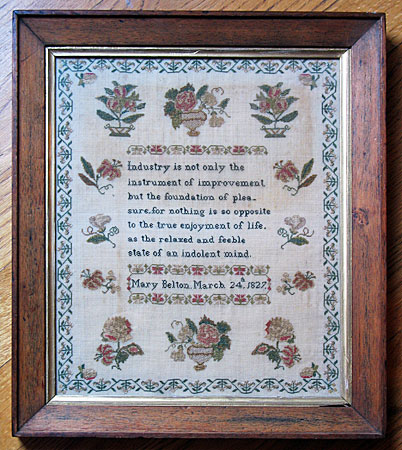 Industry is not only the
instrument of improvement,
but the foundation of plea-
sure, for nothing is so opposite
to the true enjoyment of life,
as the relaxed and feeble
state of an indolent mind.
Mary Belton March 24th 1827